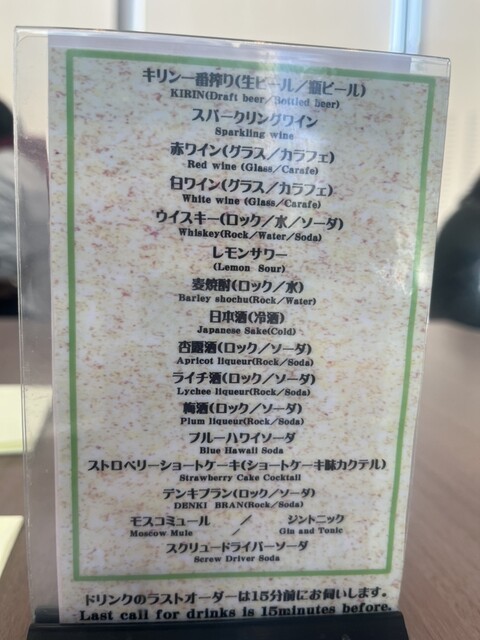 キリン一番搾り(生ビール／瓶ビール)
KIRIN(Draft beer／Bottled beer)
スパークリングワイン
Sparkling wine
赤ワイン(グラス／カラフェ)
Red wine (Glass／Carafe)
白ワイン(グラス／カラフェ)
White wine (Glass／Carafe)
ウイスキー(ロック／水／ソーダ)
Whiskey(Rock／Water／Soda)
レモンサワー
(Lemon Sour)
麦焼酎(ロック／水)
Barley shochu(Rock／Water)
日本酒(冷酒)
Japanese Sake(Cold)
杏露酒(ロック／ソーダ)
Apricot liqueur(Rock／Soda)
ライチ酒(ロック／ソーダ)
Lychee liqueur(Rock／Soda)
梅酒(ロック／ソーダ)
Plum liqueur(Rock／Soda)
ブルーハワイソーダ
Blue Hawaii Soda
ストロベリーショートケーキ(ショートケーキ味カクテル)
Strawberry Cake Cocktail
デンキブラン(ロック／ソーダ)
DENKI BRAN(Rock／Soda)
モスコミュール ／ ジントニック
Moscow Mule Gin and Tonic
スクリュードライバーソーダ
Screw Driver Soda
ドリンクのラストオーダーは15分前にお伺いします。
Last call for drinks is 15minutes before.